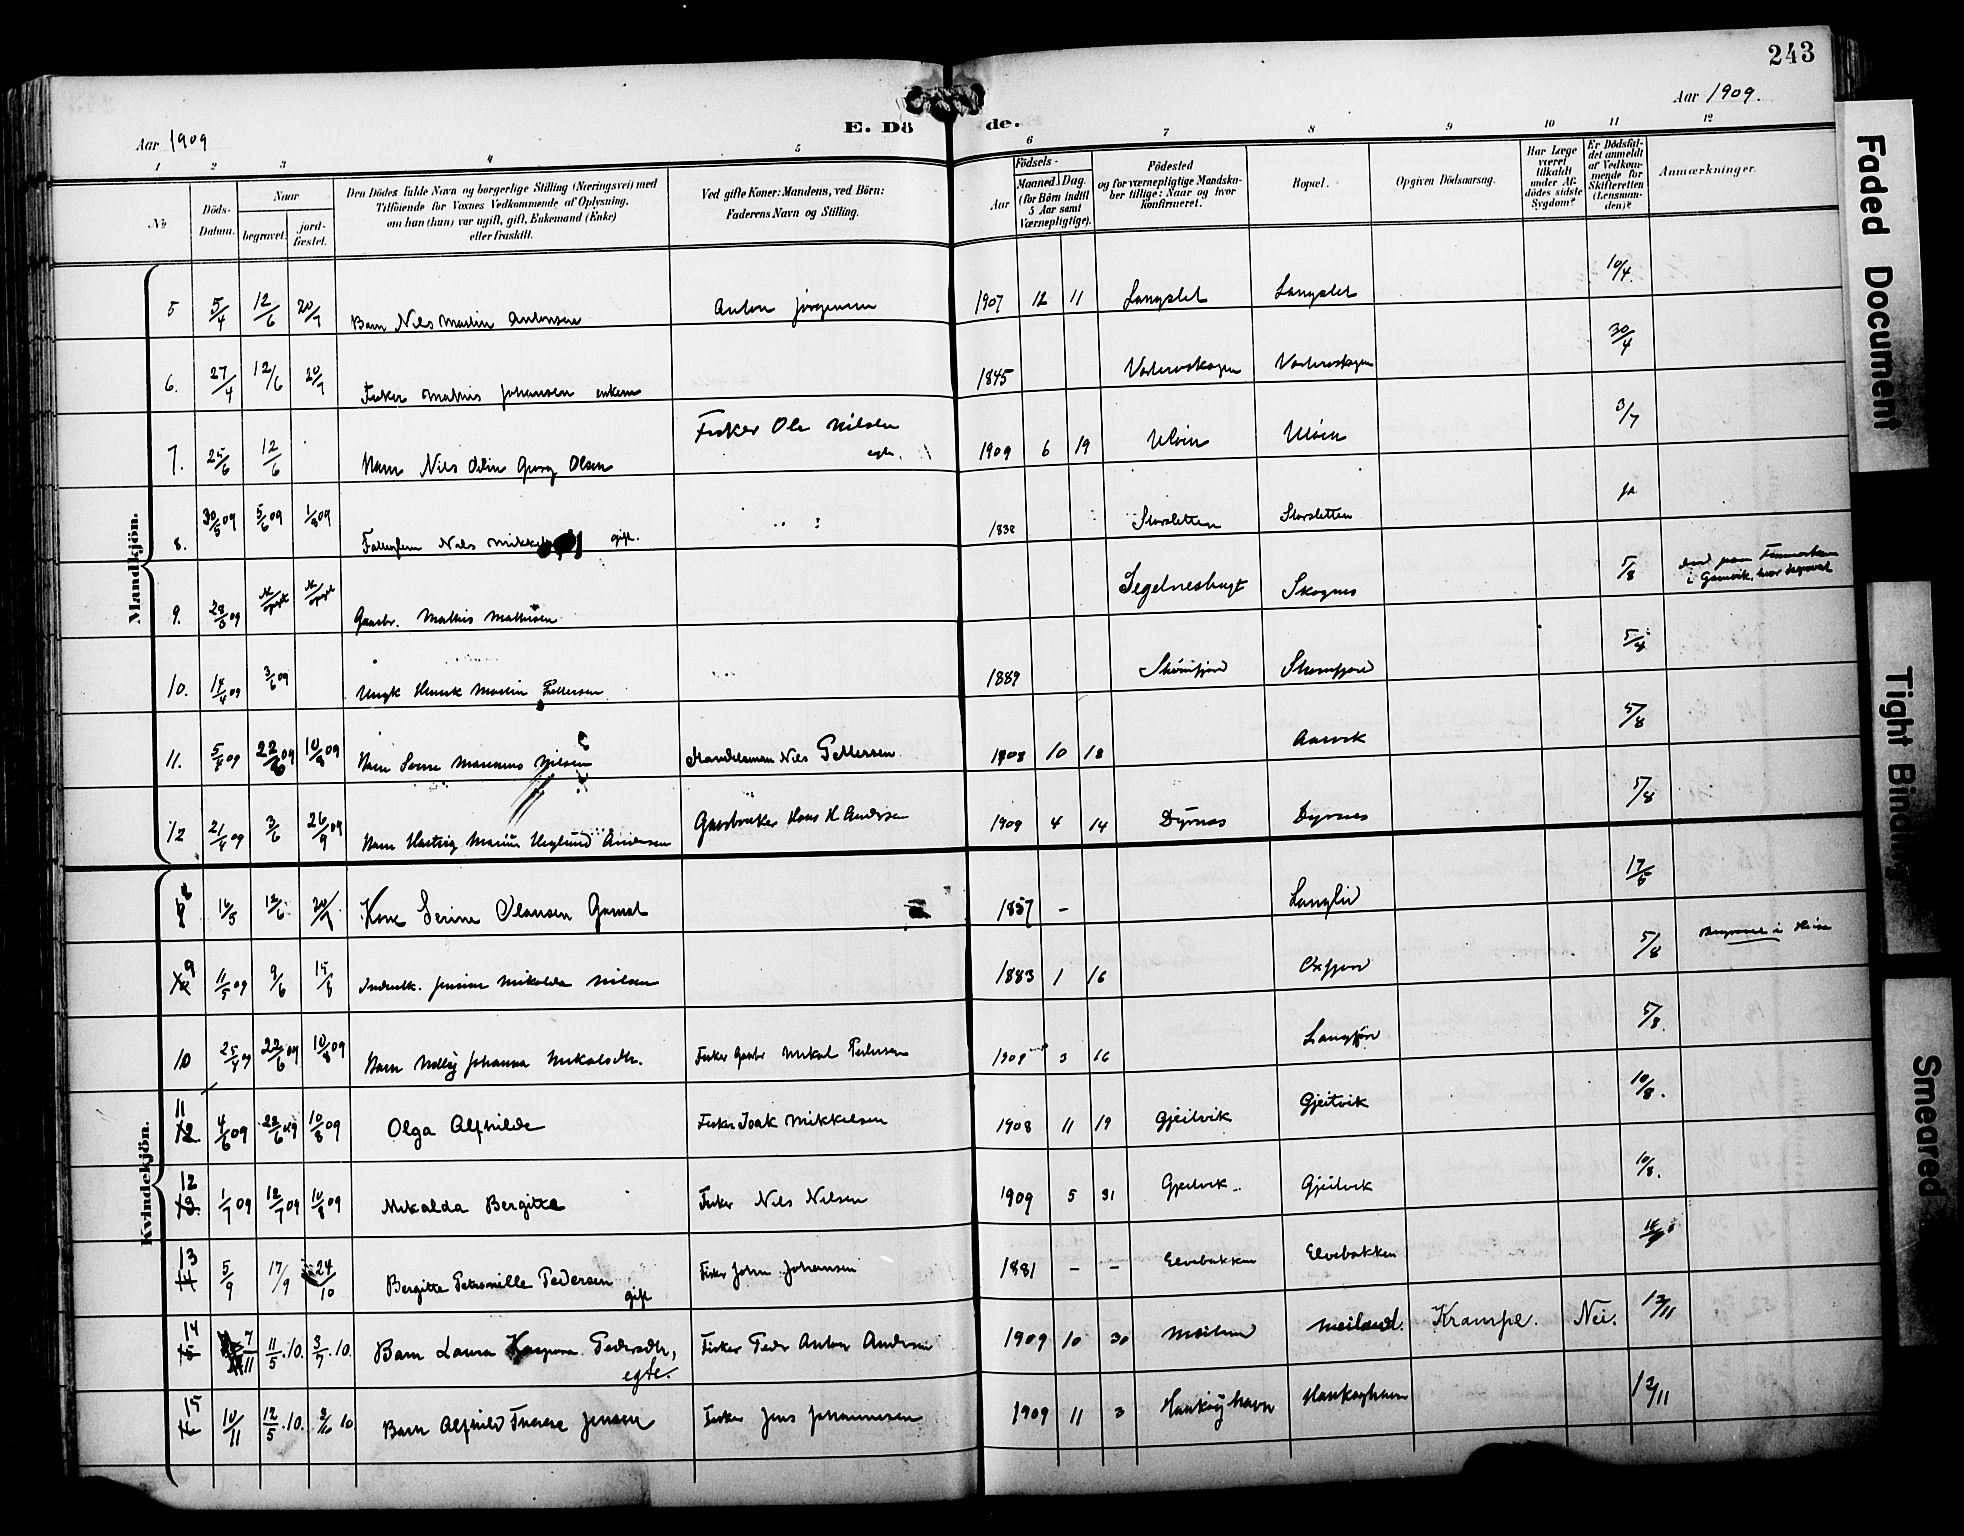 243
Aar 1909
Aar 1909.
E. Döde.
1 2 3 4 5 6 7 8 9 10 11 12
No
Döds-Datum.
Naar
begravet.
jord-fæstet.
Den Dödes fulde Navn og borgerlige Stilling (Næringsvei) med
Tilföiende for Voxnes Vedkommende af Oplysning,
om han (hun) var ugift, gift, Enkemand (Enke)
eller fraskilt.
Ved gifte Koner: Mandens, ved Börn:
Faderens Navn og Stilling.
Födsels-
Aar
Maaned. Dag.
(for Börn indtil
5 Aar samt
Værnepligtige).
Födested
og for værnepligtige Mandska-
ber tillige: Naar og hvor
konfirmeret.
Bopæl.
Opgiven Dödsaarsag.
Har Læge
været
tilkaldt
under Af-
dödes sidste
Sygdom?
Er Dödsfal-
det anmeldt
af Vedkom-
mende for
Skifteretten
(Lensman-
den)?
Anmærkninger.
Mandkjön.
5 5/4 12/6 20/7 Barn Nils Martin Antonsen Anton Jörgensen 1907 12 11 Langslet Langslet 10/4.
6. 27/4 12/6 20/7 Fisker Mathis Johansen enkem 1845 30/4
7. 25/6 12/6 Barn Nils Odin Georg Olsen Fisker Ole Nilsen egte. 1909 6 19 Uløen Uløen 3/7
8. 30/5 09 5/6 09 1/8 09 Nils gift. 1838 Storsletten Storsletten ja
9. 09 Gaardbr. Mathis Mathisen Segelneshugt Skognes 5/8 i Gamvik, hvor begravet
10. 14/4 09 3/6 09 Ungk Henrik Martin Pettersen 1889 5/8
11. 5/4 09 22/6 09 10/8 09 Barn Marenius Nilsen Handelsman Nils Pettersen 1908 10 18 Aarvik 5/8
12 21/4 09 3/6 26/9 09 Barn Hartvig Marius Heglund Andersen Gaardbruker Hans H Andersen 1909 4 14 Dyrnes Dyrnes 5/8
Kvindekjön.
8 16/5 12/6 20/7 Kone Serine Olausen Gamst 1857 – Langlid 17/6
9 11/5 09 9/6 15/8 Mikalda Nilsen 1883 1 16 Oxfjord 5/8 Begravet i
10 25/4 09 22/6 09 10/8 09 Barn Johanna Mikalsdtr. Fisker Gaardbr Mikal Pedersen 1909 3 16 5/8.
11 4/6 09 22/6 09 10/8 09 Olga Alfhilde Fisker Isak Mikkelsen 1908 11 19 Gjeitvik Gjeitvik 10/8.
12 1/7 09 12/7 09 10/8 09 Mikalda Bergitte Fisker Nils Nilsen 1909 5 31 Gjeitvik Gjeitvik 10/8.
13 5/9 17/9 24/10 Bergitte Petronille Pedersen gift Fisker John Johansen 1881 – – Elvebakken Elvebakken
14 7/11 11/5.10. 3/7.10. Barn Laura Kaspara Pedersdtr, egte. Fisker Peder Anton Andersen 1909 10 30 Meiland. Krampe. Nei. 12/11
15 10/11 12/5.10. 10. Barn Alfhild Therese Jensen Fisker Jens Johannesen 1909 11 3 Haukøyhavn Haukøyhavn 12/11
Faded Document
Tight Binding
Smeared